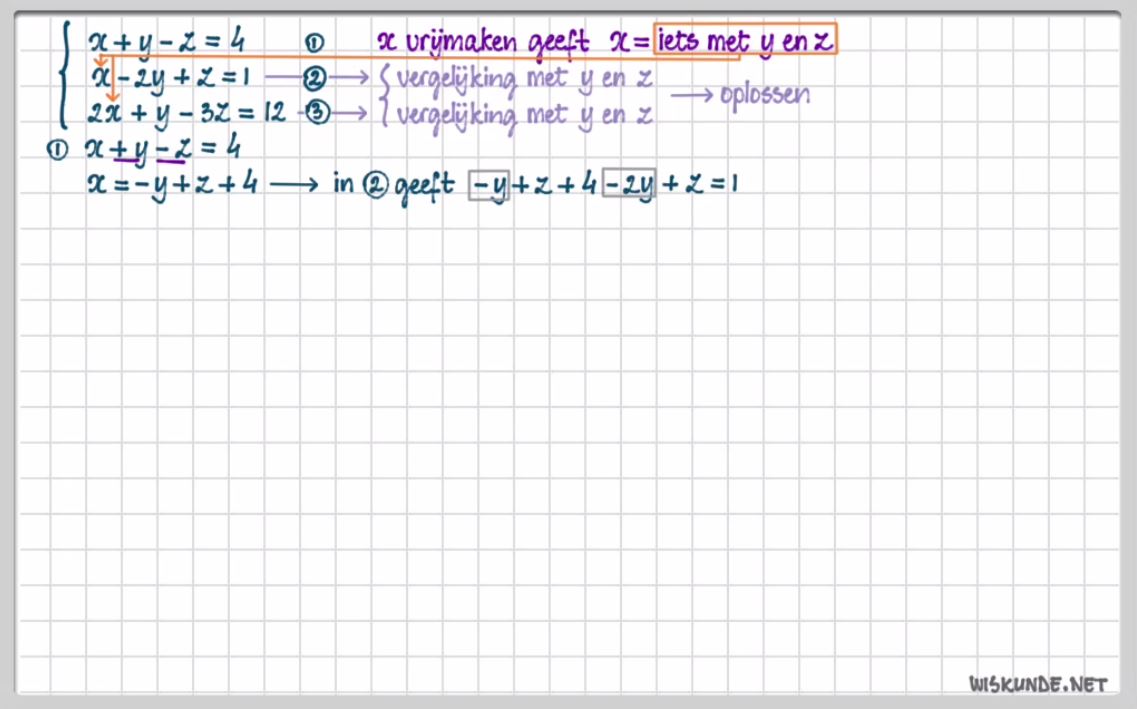 x + y - z = 4 ① x vrijmaken geeft x = iets met y en z
x - 2y + z = 1 ② → { vergelijking met y en z
→ oplossen
2x + y - 3z = 12 ③ → { vergelijking met y en z
① x + y - z = 4
x = -y + z + 4 → in ② geeft -y + z + 4 - 2y + z = 1
WISKUNDE.NET